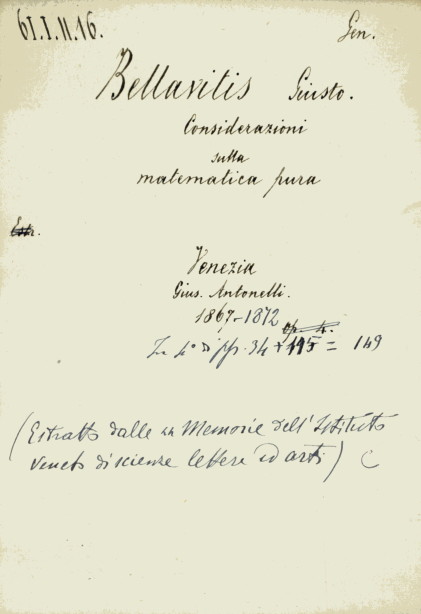 61.I.11.16.
Gen.
Bellavitis Giusto.
Considerazioni
sulla
matematica pura
Estr.
Venezia
Gius. Antonelli.
1867-1872
In 4° di pp. 34 + 115 = 149
(Estratto dalle Memorie dell'Istituto
Veneto di scienze lettere ed arti)